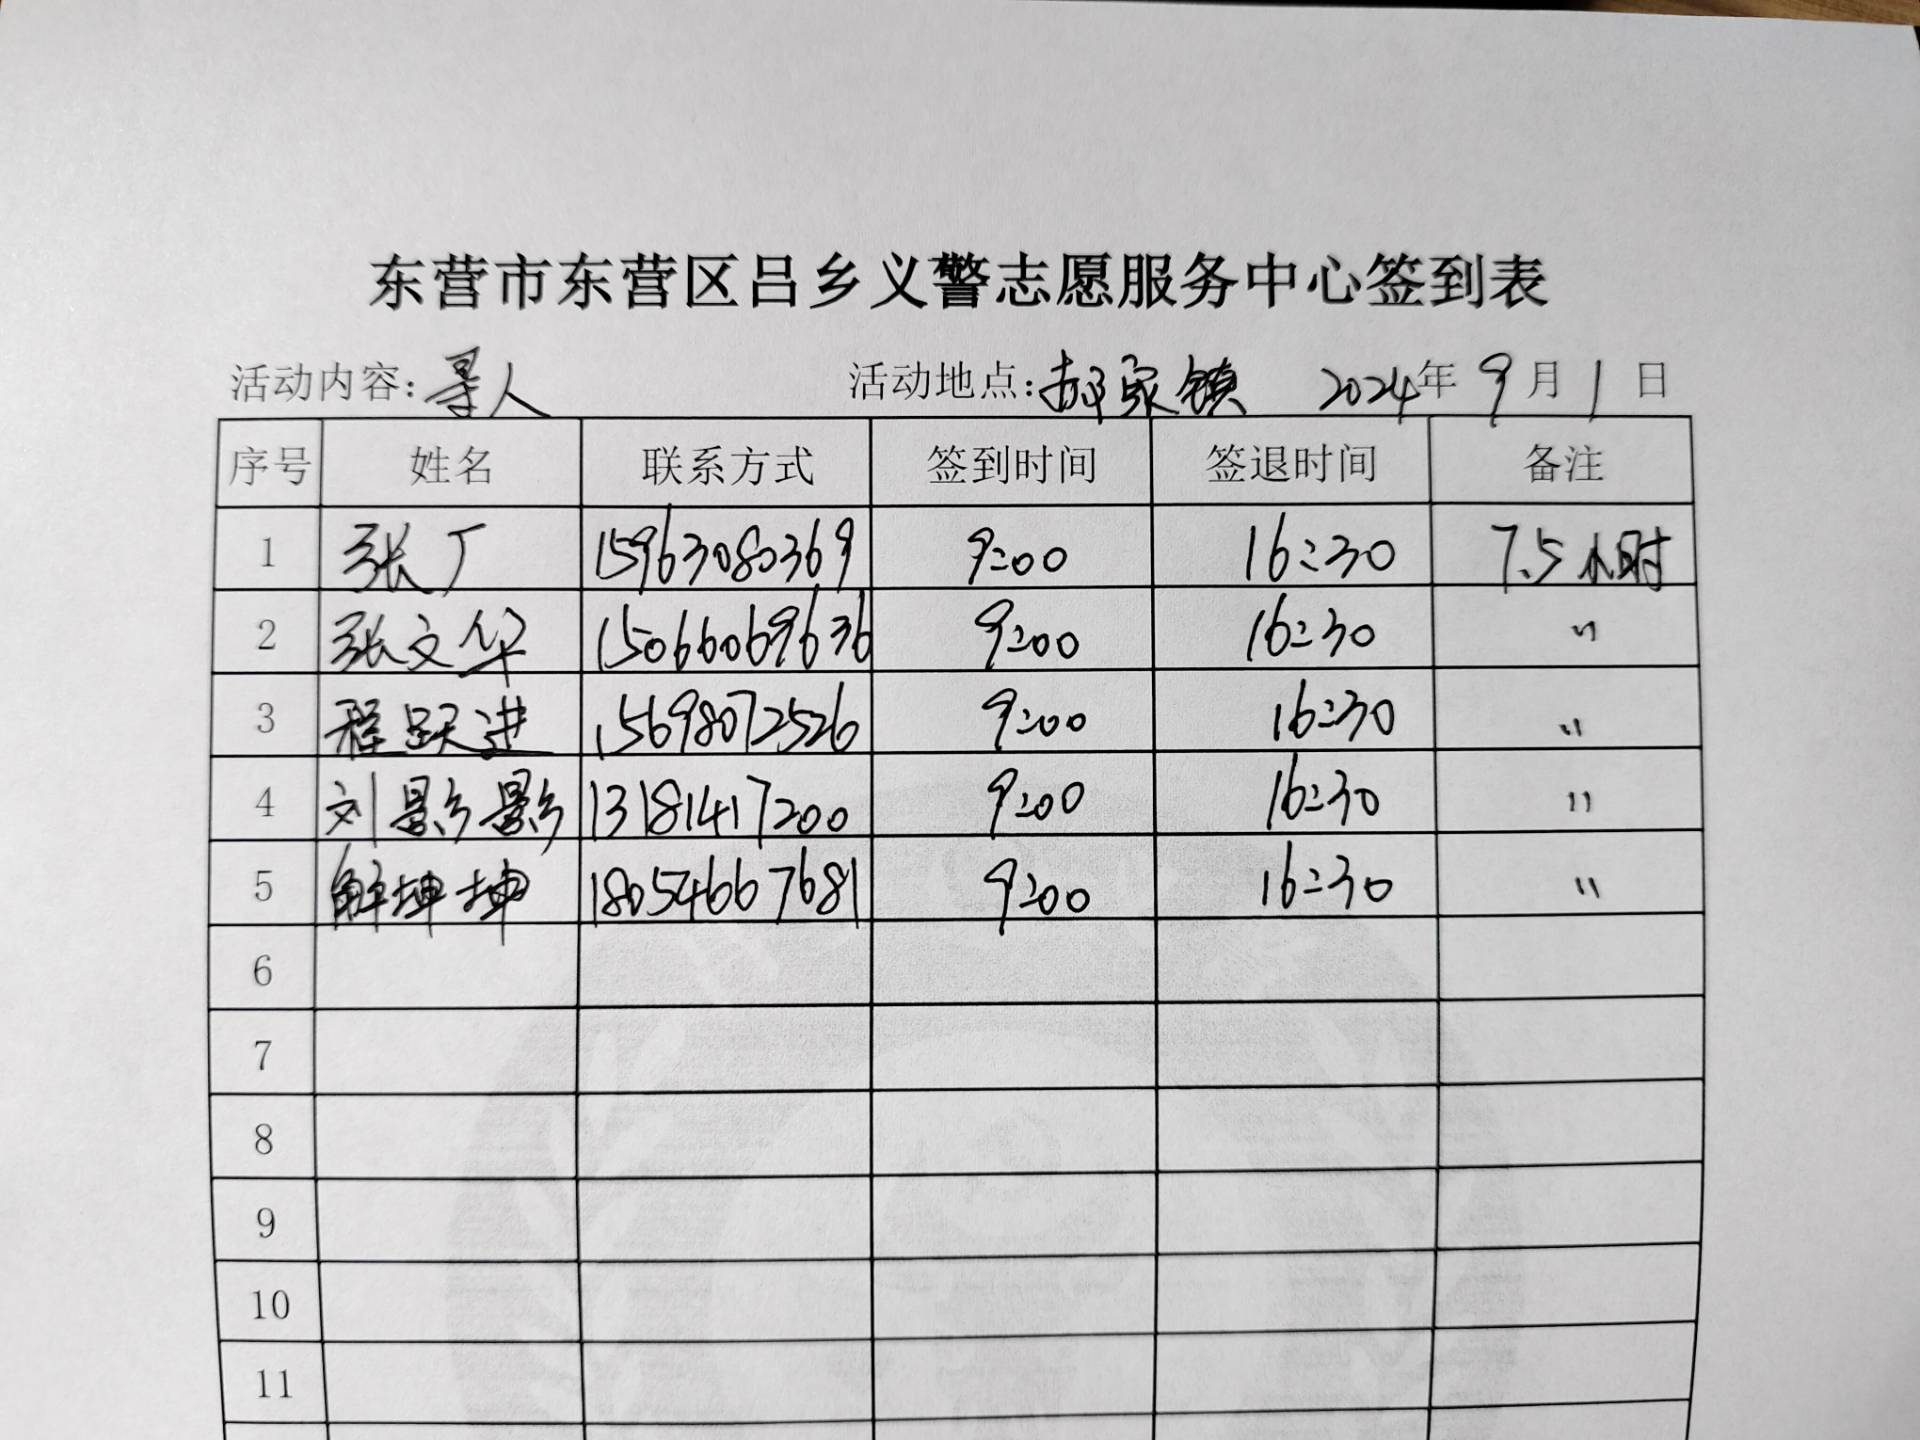 东营市东营区吕乡义警志愿服务中心签到表
活动内容:寻人 活动地点:郝家镇 2024年9月1日
序号 姓名 联系方式 签到时间 签退时间 备注
1 张广 15963080369 9:00 16:30 7.5小时
2 张文华 15066069636 9:00 16:30 〃
3 程跃进 15698072526 9:00 16:30 〃
4 刘影影 13181417200 9:00 16:30 〃
5 解坤坤 18054667681 9:00 16:30 〃
6
7
8
9
10
11